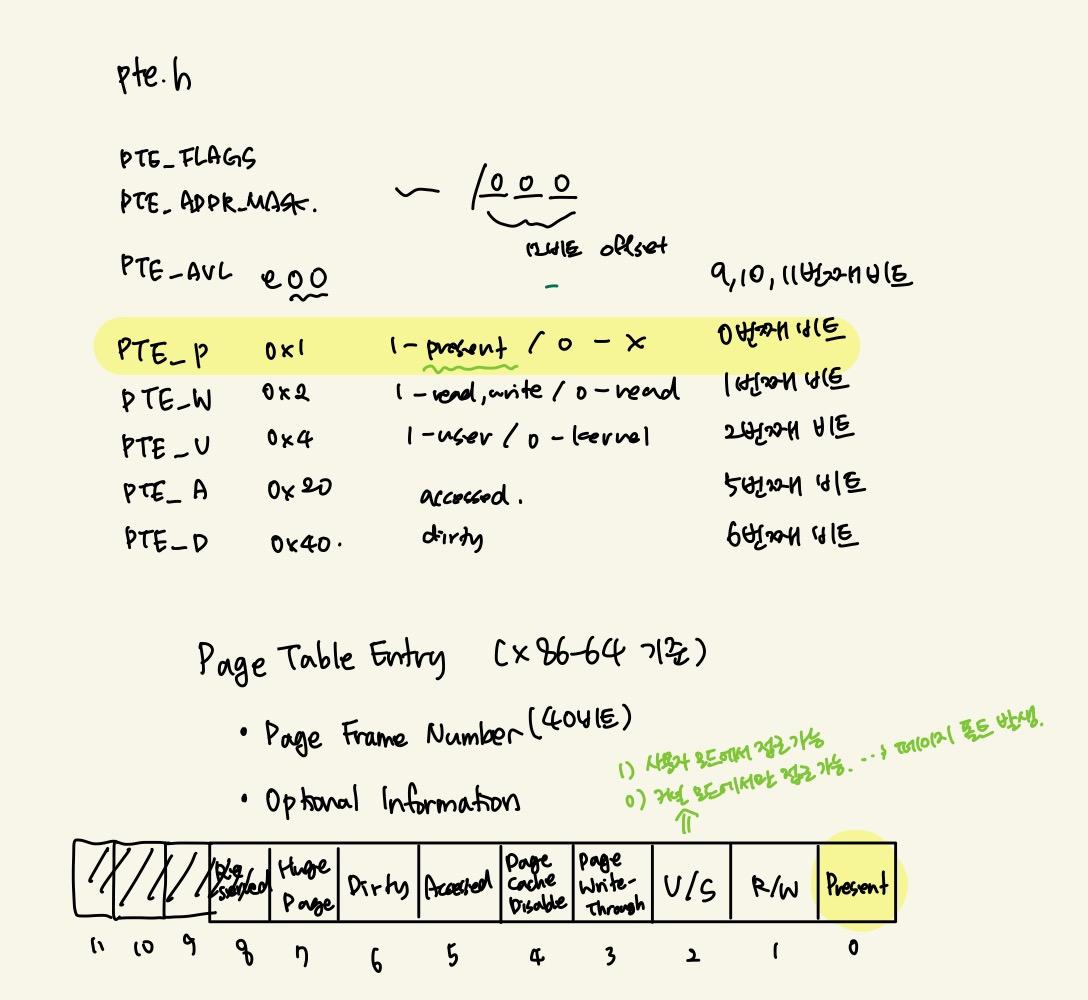 pte.h
PTE_FLAGS
PTE_ADDR_MASK. ~ /000
12비트 offset
PTE_AVL e00 - 9,10,11번째 비트
PTE_P 0x1 1-present / 0-x 0번째 비트
PTE_W 0x2 1-read,write / 0-read 1번째 비트
PTE_U 0x4 1-user / 0-kernel 2번째 비트
PTE_A 0x20 accessed. 5번째 비트
PTE_D 0x40. dirty 6번째 비트
Page Table Entry (x86-64 기준)
• Page Frame Number (40비트)
1) 사용자 모드에서 접근가능
0) 커널 모드에서만 접근가능. ...; 페이지 폴트 발생.
• Optional Information
Huge Page
Dirty
Accessed
Page Cache Disable
Page Write-Through
U/S
R/W
Present
11 10 9 8 7 6 5 4 3 2 1 0